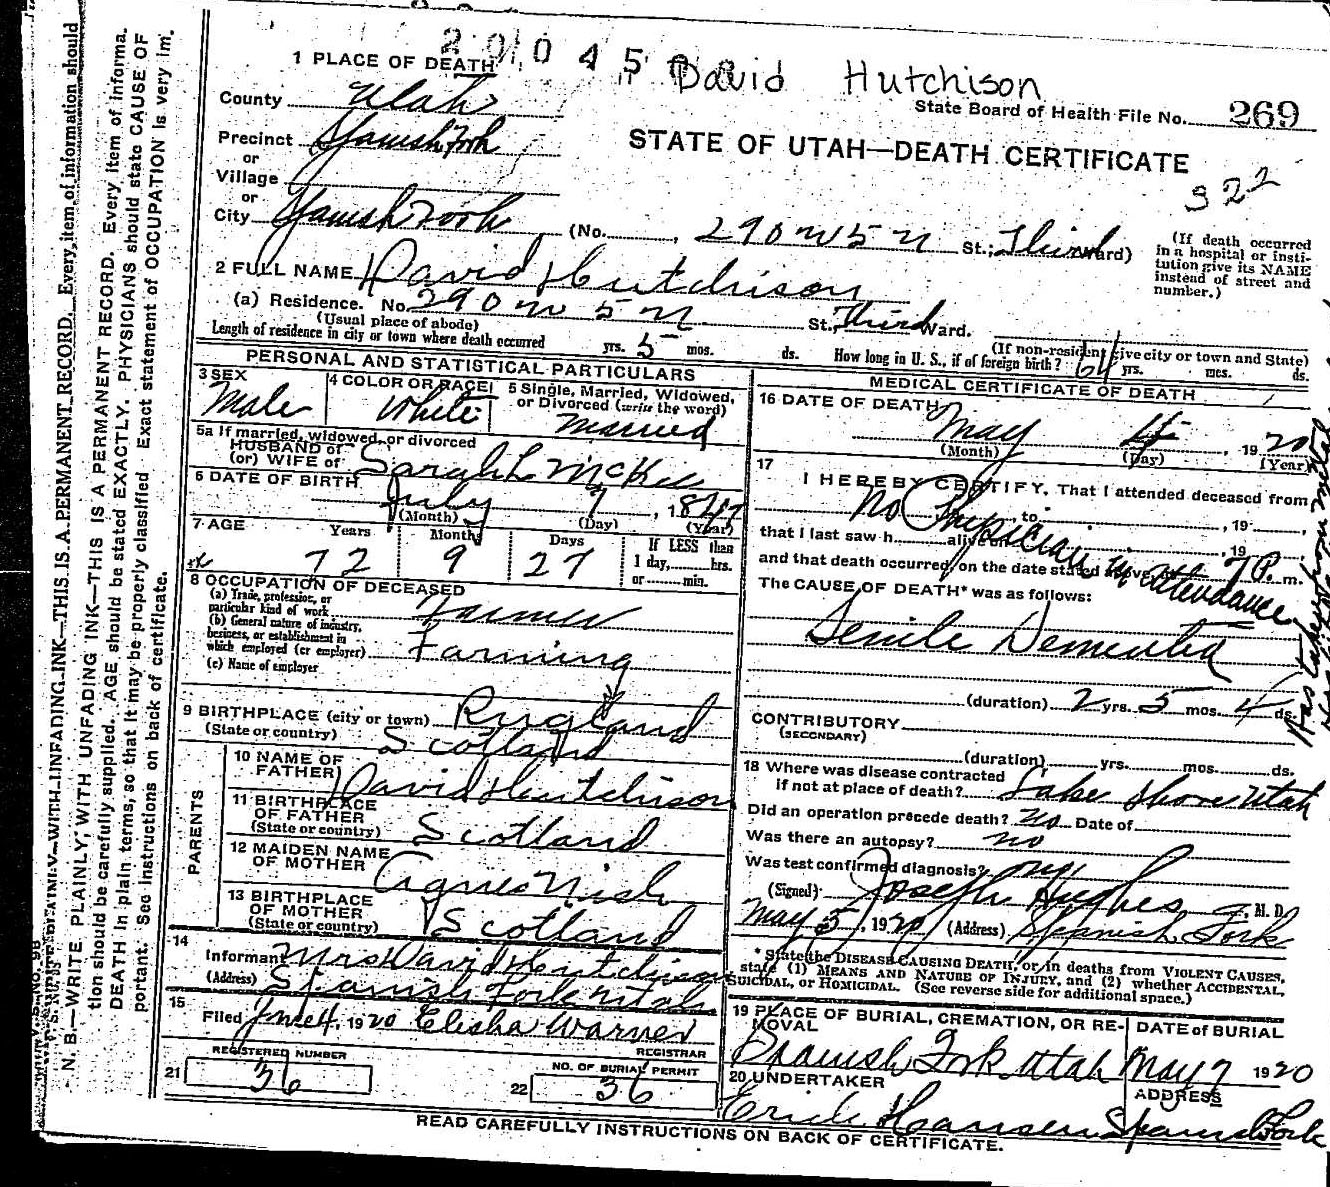 N. B.—WRITE PLAINLY, WITH UNFADING INK—THIS IS A PERMANENT RECORD. Every item of informa-
tion should be carefully supplied. AGE should be stated EXACTLY. PHYSICIANS should state CAUSE OF
DEATH in plain terms, so that it may be properly classified. Exact statement of OCCUPATION is very im-
portant. See instructions on back of certificate.
2004500
David Hutchison
1 PLACE OF DEATH
State Board of Health File No. 269
County Utah
STATE OF UTAH—DEATH CERTIFICATE
322
Precinct Spanish Fork
or
Village
or
City Spanish Fork (No. 290 W 5 N St.; Third Ward)
(If death occurred
in a hospital or insti-
tution give its NAME
instead of street and
number.)
2 FULL NAME David Hutchison
(a) Residence. No. 290 W 5 N St., Third Ward.
(Usual place of abode)
(If non-resident give city or town and State)
Length of residence in city or town where death occurred yrs. 5 mos. ds. How long in U. S., if of foreign birth? 64 yrs. mos. ds.
PERSONAL AND STATISTICAL PARTICULARS
3 SEX
Male
4 COLOR OR RACE
White
5 Single, Married, Widowed,
or Divorced (write the word)
Married
5a If married, widowed, or divorced
HUSBAND of
(or) WIFE of Sarah L McKee
6 DATE OF BIRTH
July 7, 1847
(Month) (Day) (Year)
7 AGE Years Months Days If LESS than
72 9 27 1 day, hrs.
or min.
8 OCCUPATION OF DECEASED
(a) Trade, profession, or
particular kind of work Farmer
(b) General nature of industry,
business, or establishment in
which employed (or employer) Farming
(c) Name of employer
9 BIRTHPLACE (city or town)
(State or country) Scotland
PARENTS
10 NAME OF
FATHER David Hutchison
11 BIRTHPLACE
OF FATHER
(State or country) Scotland
12 MAIDEN NAME
OF MOTHER Agnes Nish
13 BIRTHPLACE
OF MOTHER
(State or country) Scotland
14
Informant Mrs David Hutchison
(Address) Spanish Fork Utah
15
Filed June 4, 1920 Elisha Warner
REGISTRAR
21 REGISTERED NUMBER
36
22 NO. OF BURIAL PERMIT
36
MEDICAL CERTIFICATE OF DEATH
16 DATE OF DEATH
May 4, 1920
(Month) (Day) (Year)
17
I HEREBY CERTIFY, That I attended deceased from
, to , 19
No Physician in Attendance
that I last saw h alive on , 19
and that death occurred, on the date stated above, at 7 P. m.
The CAUSE OF DEATH* was as follows:
Senile Dementia
(duration) 2 yrs. 5 mos. 4 ds.
CONTRIBUTORY
(SECONDARY)
(duration) yrs. mos. ds.
18 Where was disease contracted
if not at place of death? Lake Shore Utah
Did an operation precede death? No Date of
Was there an autopsy? no
Was test confirmed diagnosis? no
(Signed) Joseph Hughes, M. D.
May 5, 1920 (Address) Spanish Fork
*State the DISEASE CAUSING DEATH, or, in deaths from VIOLENT CAUSES,
state (1) MEANS AND NATURE OF INJURY, and (2) whether ACCIDENTAL,
SUICIDAL, or HOMICIDAL. (See reverse side for additional space.)
19 PLACE OF BURIAL, CREMATION, OR RE-
MOVAL
Spanish Fork Utah
DATE of BURIAL
May 7 1920
20 UNDERTAKER
Erick Hansen
ADDRESS
Spanish Fork
READ CAREFULLY INSTRUCTIONS ON BACK OF CERTIFICATE.